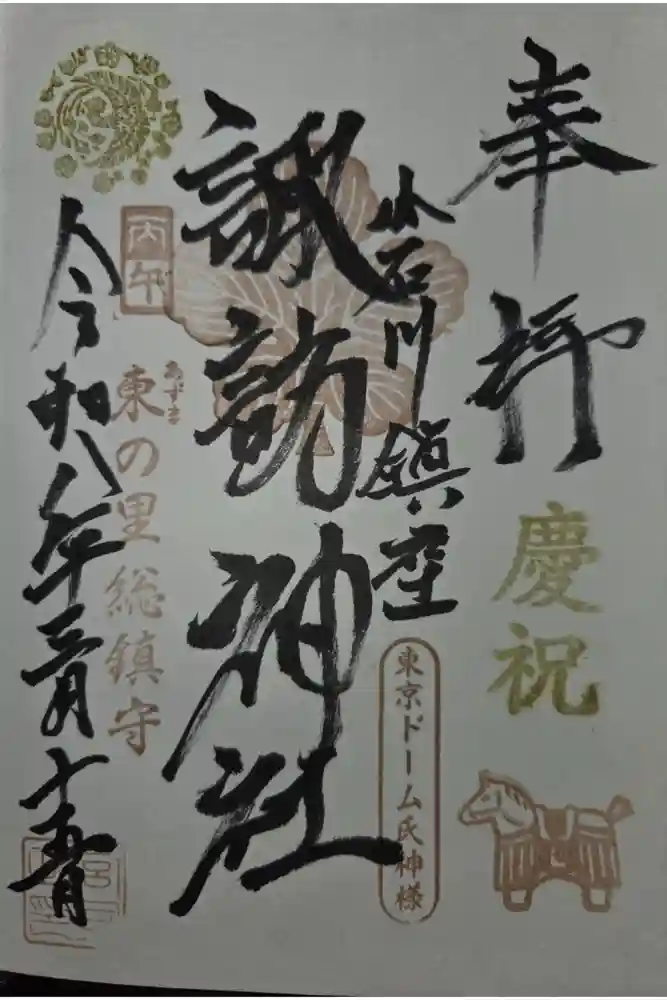 奉拝
慶祝
小石川鎮座
東京ドーム氏神様
諏訪神社
丙午
あずま
東の里総鎮守
令和八年三月十五日